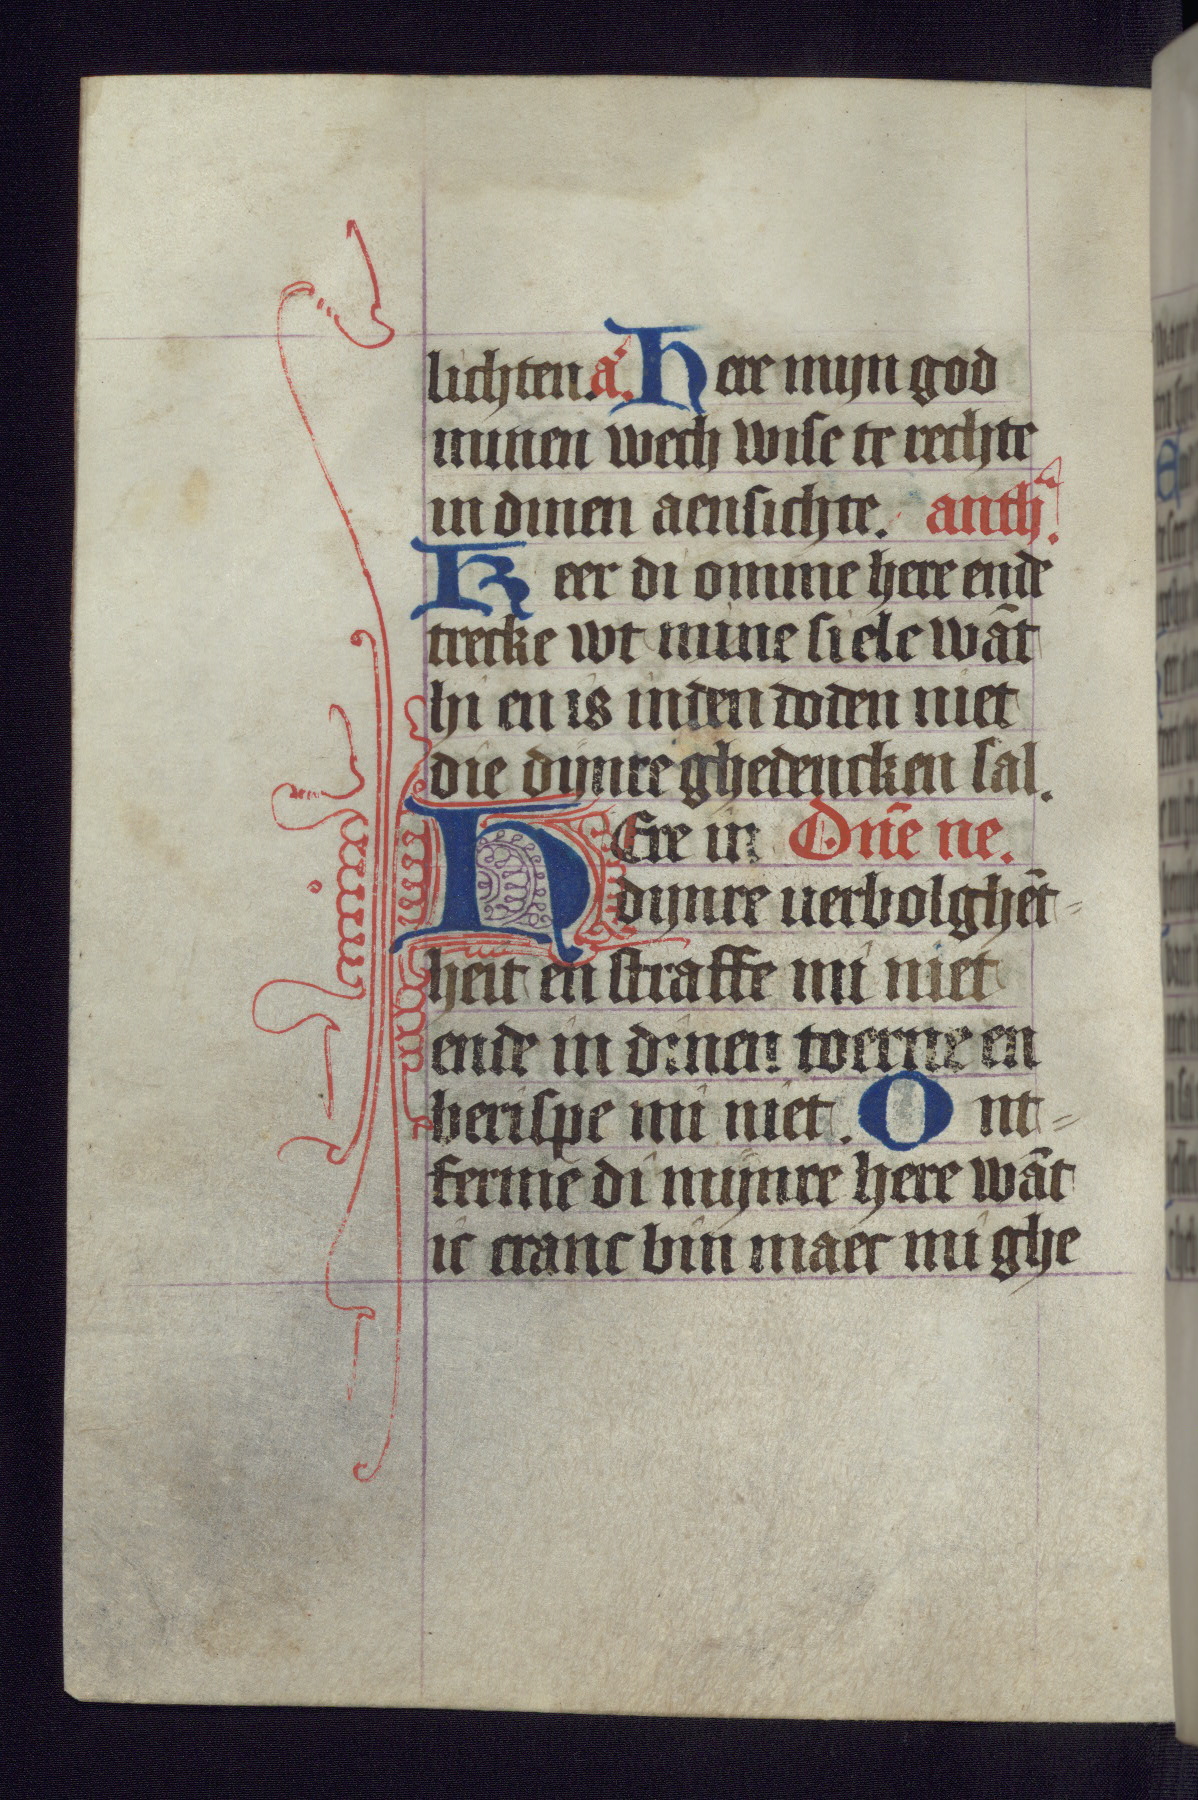 lichten. a᷃. Here mijn god
minen wech wise te rechte
in dinen aensichte. anth᷃.
Keer di omme here ende
trecke wt mine siele wāt
hi en is inden doden niet
die dijnre ghedencken sal.
HEre in Dn̄e ne.
dijnre uerbolghēt=
heit en straffe mi niet
ende in dinen toerne en
berispe mi niet. Ont=
ferme di mijnre here wāt
ic cranc bin maec mi ghe